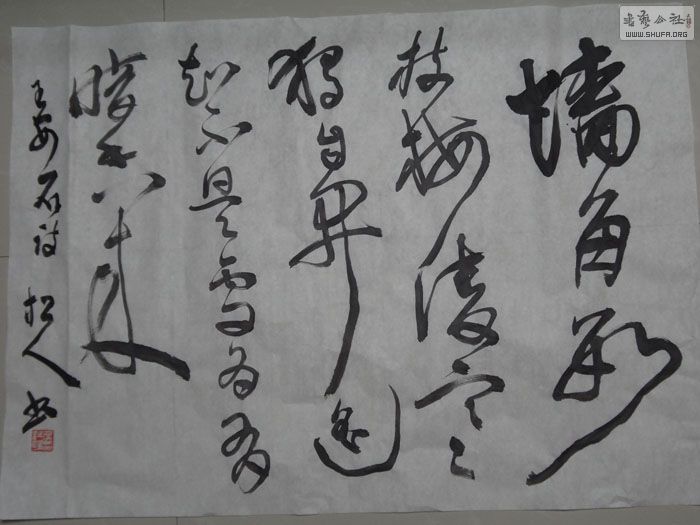 書藝公社
WWW.SHUFA.ORG
墙角数
枝梅凌寒
独自开遥
知不是雪为有
暗香来
王安石诗 松人书